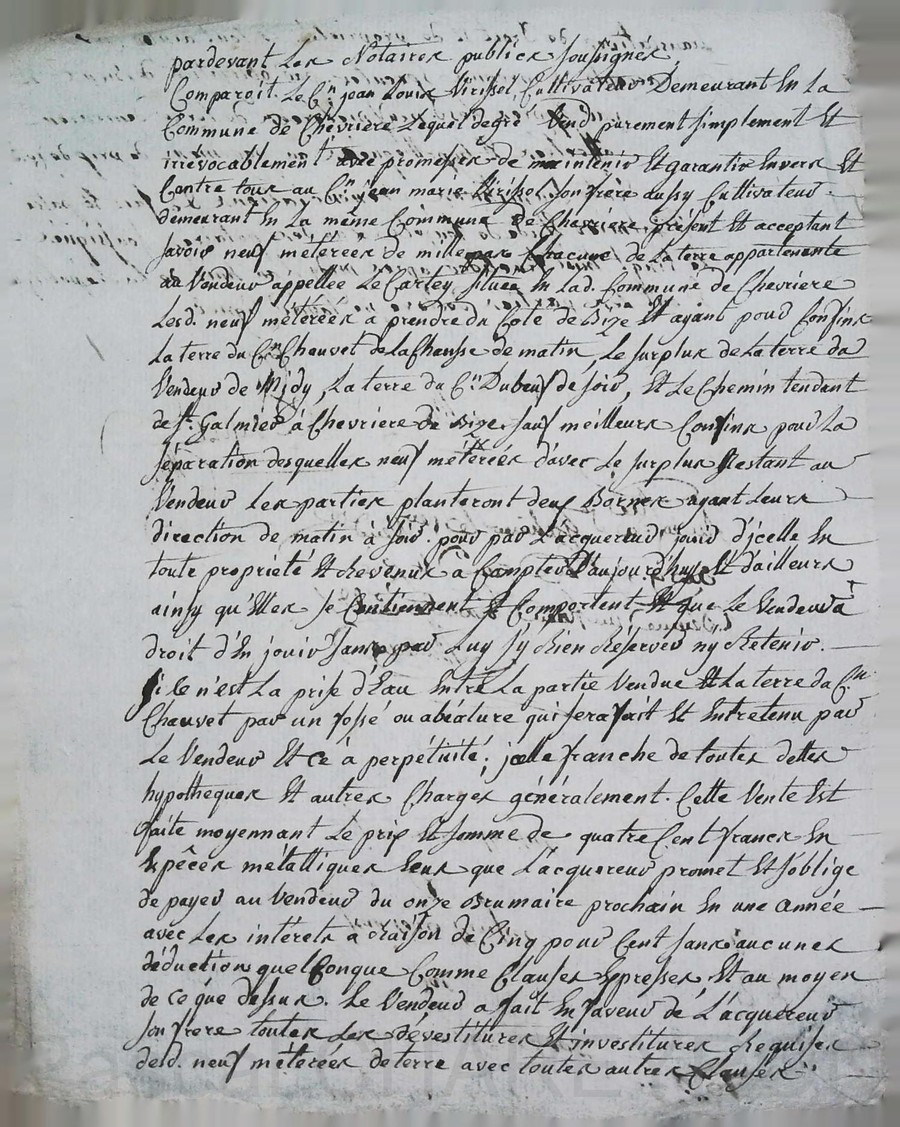 pardevant Les Notaires publics soussignés
Comparoit Le C.en jean Louis Virissel Cultivateur Demeurant En La
Commune de Chevriere Lequel degré Vend purement simplement Et
irrévocablement avec promesses de maintenir Et garantir Envers Et
Contre tous au C.en jean marie Virissel son frère aussy Cultivateur
demeurant En La même Commune de Chevriere présent Et acceptant
savoir neuf métérées de mille pas Chacune de La terre appartenante
au Vendeur appellée Le Cartey située En Lad. Commune de Chevriere
Lesd. neuf métérées à prendre du Coté de Bize Et ayant pour Confins
La terre du C.en Chauvet de La Chausse de matin, Le surplus de La terre du
Vendeur de Midy, La terre du C.en Dubeuf de soir, Et Le Chemin tendant
de S.t Galmier à Chevriere de Bize, sauf meilleurs Confins pour La
séparation desquelles neuf métérées d'avec Le surplus Restant au
Vendeur Les parties planteront deux Bornes ayant Leurs
direction de matin à soir. pour par L'acquereur jouir d'jcelle En
toute propriété Et Revenus à Compter D'aujourd'huy Et d'ailleurs
ainsy qu'Elles se Contiennent Et Comportent Et que Le Vendeur à
droit d'En jouir sans par Luy s'y Rien Réserver ny Retenir.
si Ce n'est La prise d'Eau Entre La partie Vendue Et La terre du C.en
Chauvet par un fossé ou abéalure qui sera fait Et Entretenu par
Le Vendeur Et ce à perpétuité; jcelle franche de toutes dettes
hypotheques Et autres Charges généralement. Cette Vente Est
faite moyennant Le prix Et somme de quatre Cent francs En
Espêces métalliques Eeux que L'acquereur promet Et s'oblige
de payer au Vendeur du onze Brumaire prochain En une année
avec Les intérets à Raison de Cinq pour Cent sans aucunes
déduction quelConque Comme Clauses Expresses, Et au moyen
de ce que dessus. Le Vendeur a fait En faveur de L'acquereur
son frere toutes Les dévestitures Et investitures Requises
desd. neuf métérées de terre avec toutes autres Clauses